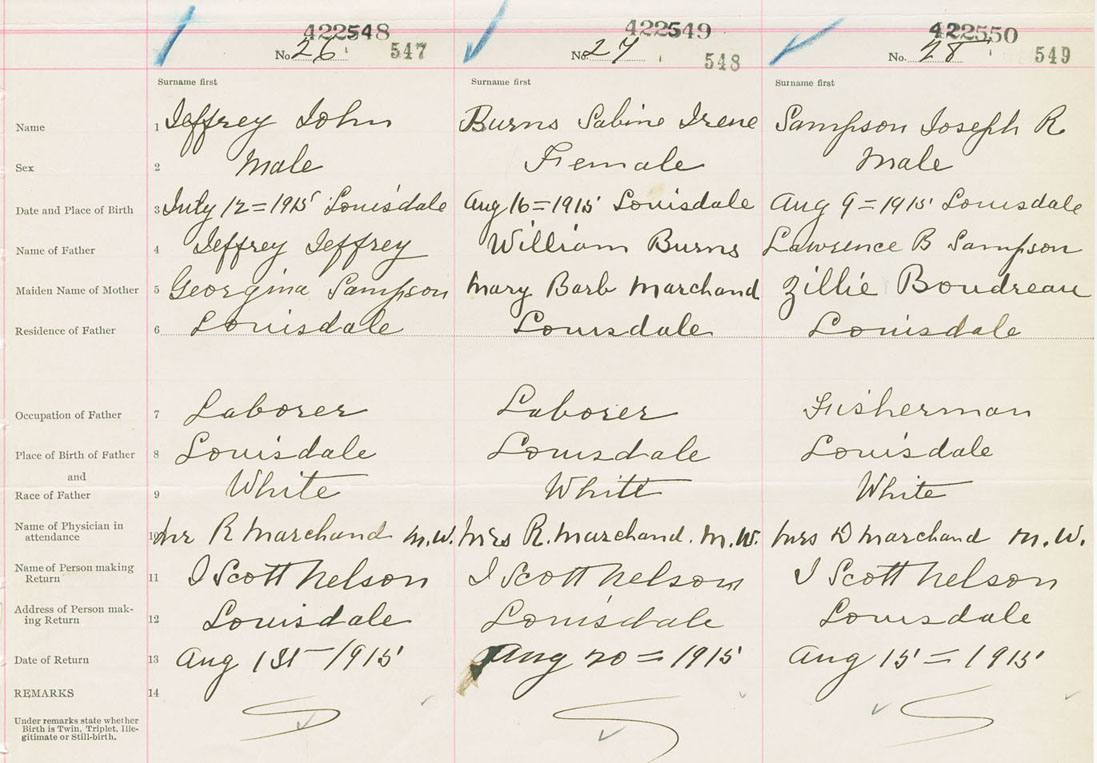 422548 422549 422550
No. 26 547 No. 27 548 No. 28 549
Surname first Surname first Surname first
Name 1 Jeffrey John Burns Sabine Irene Sampson Joseph R
Sex 2 Male Female Male
Date and Place of Birth 3 July 12=1915 Louisdale Aug 16=1915 Louisdale Aug 9=1915 Louisdale
Name of Father 4 Jeffrey Jeffrey William Burns Lawrence B Sampson
Maiden Name of Mother 5 Georgina Sampson Mary Barb Marchand Zillie Boudreau
Residence of Father 6 Louisdale Louisdale Louisdale
Occupation of Father 7 Laborer Laborer Fisherman
Place of Birth of Father 8 Louisdale Louisdale Louisdale
and
Race of Father 9 White White White
Name of Physician in
attendance 10 Mr R Marchand M.W. Mrs R. Marchand. M.W. Mrs D Marchand M.W.
Name of Person making
Return 11 J Scott Nelson J Scott Nelson J Scott Nelson
Address of Person mak-
ing Return 12 Louisdale Louisdale Louisdale
Date of Return 13 Aug 1st 1915 Aug 20=1915 Aug 15=1915
REMARKS 14
Under remarks state whether
Birth is Twin, Triplet, Ille-
gitimate or Still-birth.